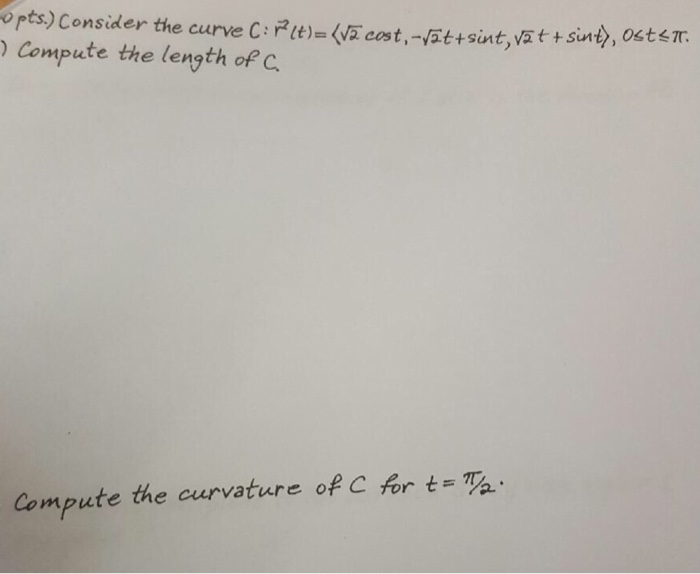 0 pts.) Consider the curve C: r⃗(t) = ⟨√2 cost, -√2t + sint, √2 t + sint⟩, 0≤t≤π.
) Compute the length of C.
Compute the curvature of C for t = π/2.